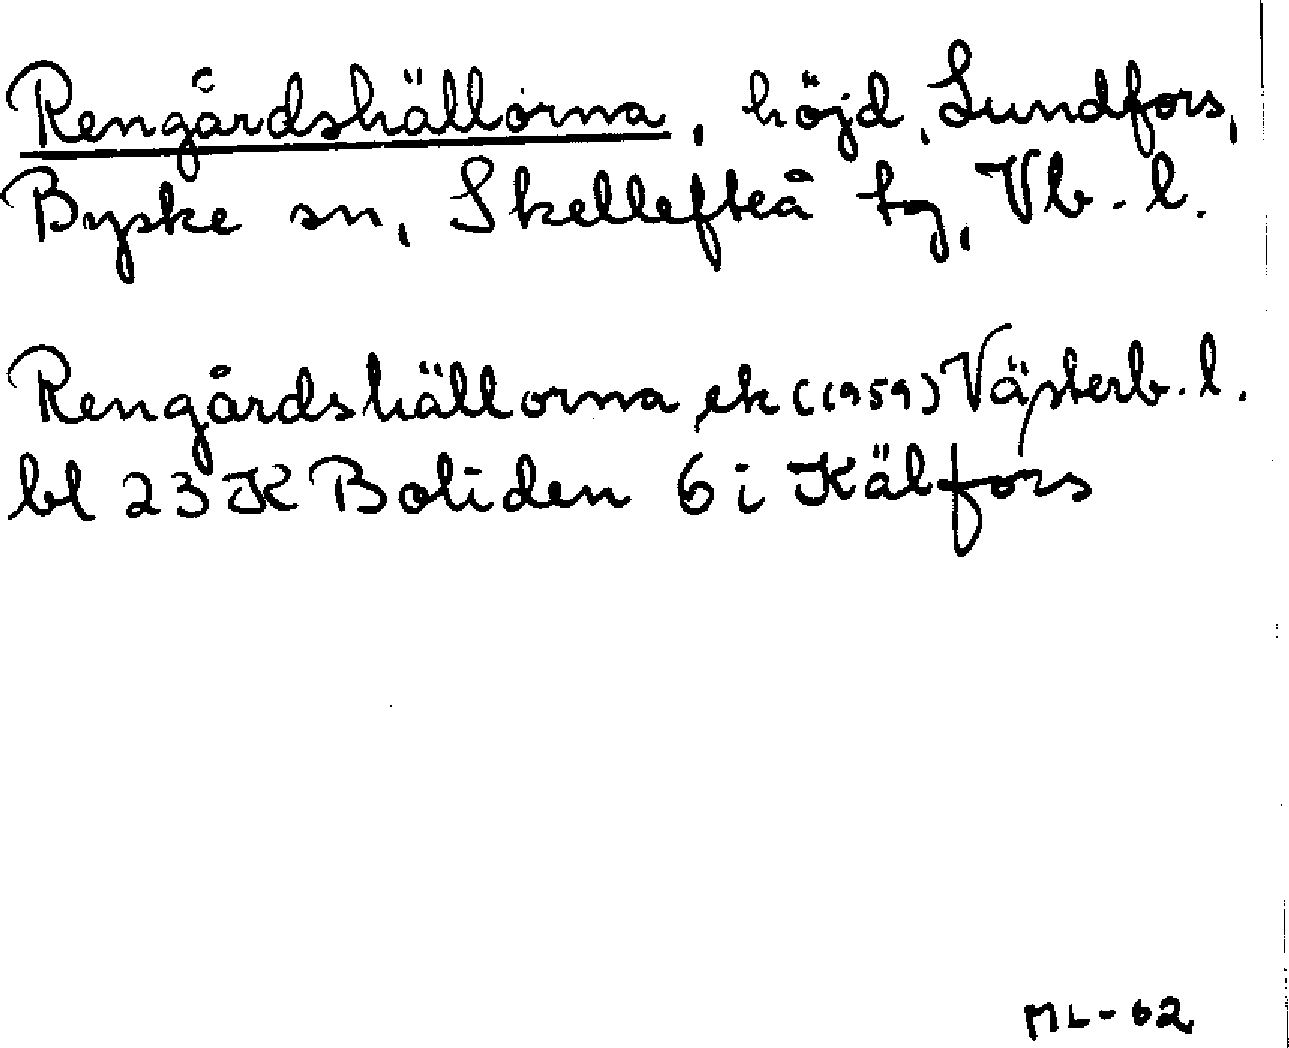 Rengårdshällorna, höjd, Lundfors,
Byske sn, Skellefteå tg, Vb. l.
Rengårdshällorna, ek (1959) Västerb. l.
bl 23 K Boliden 6 i Kälfors
ML-62